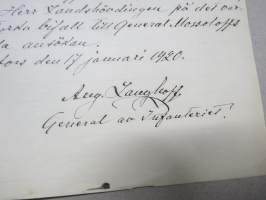 Herr Landshöfdingen på det vör-
bifall till General Mossoloffs
da ansökan.
fors den 17 januari 1920.
Aug. Langhoff.
General av Infanteriet.